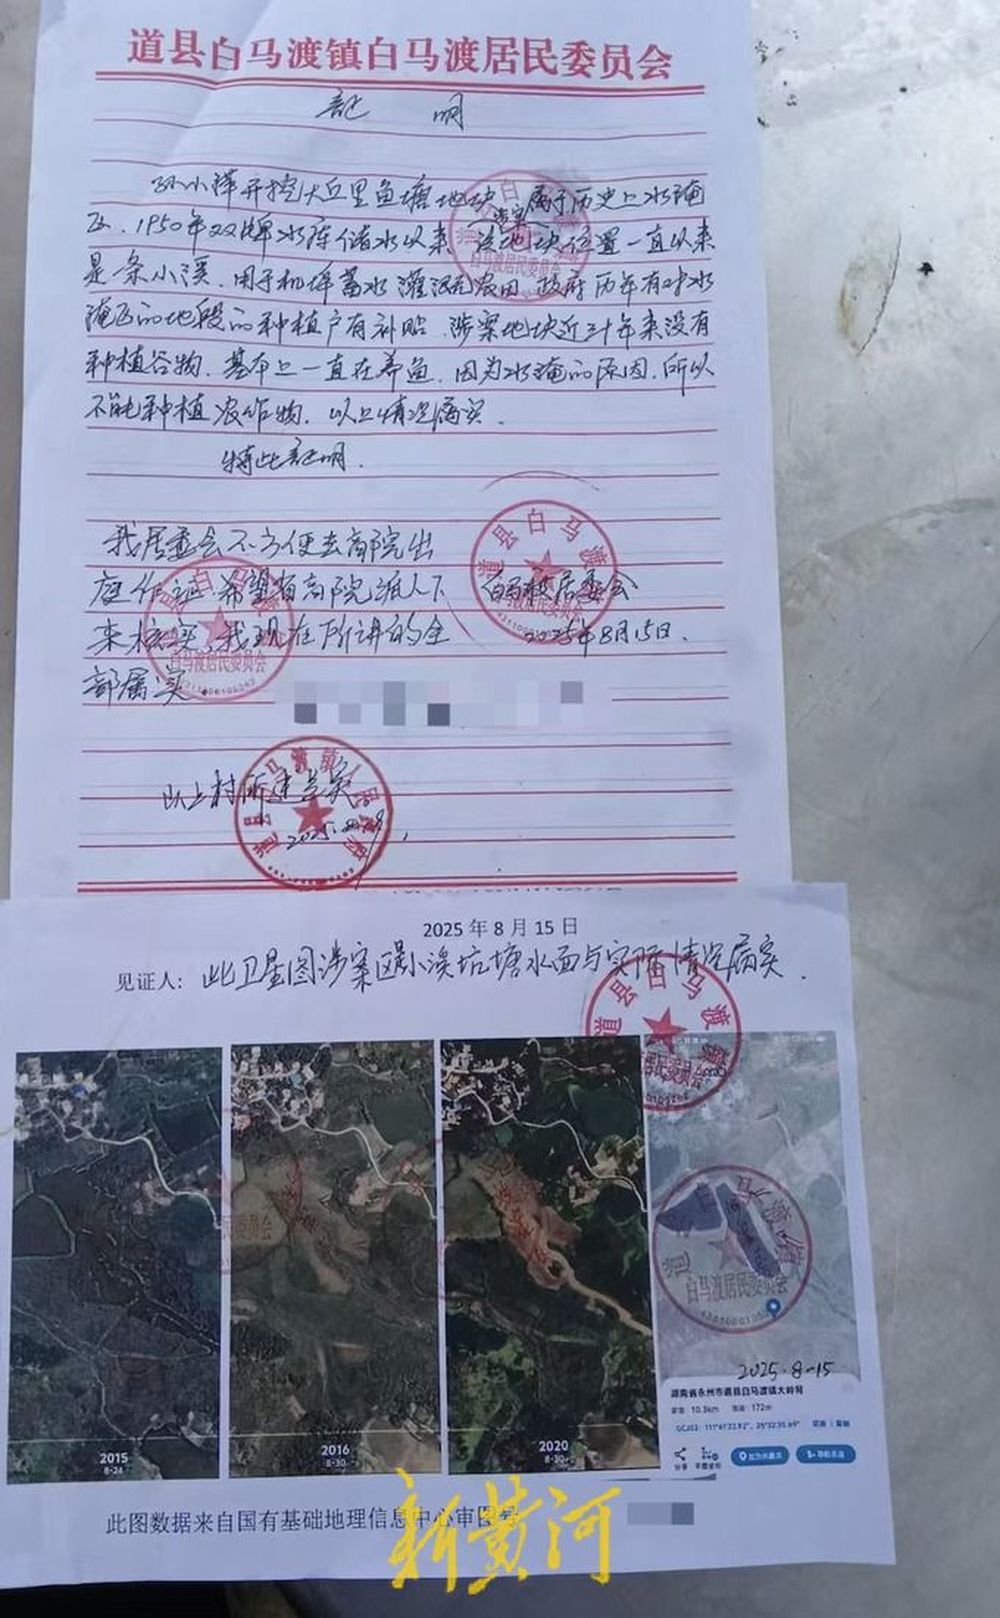 道县白马渡镇白马渡居民委员会
証 明
孙小祥开挖大丘里鱼塘地块属于历史上水淹
区，1950年双牌水库储水以来 该地块位置一直以来
是条小溪，用于机埠蓄水灌溉农田 政府历年有对水
淹区的地段的种植户有补贴 涉案地块近三十年来没有
种植谷物，基本上一直在养鱼，因为水淹的原因，所以
不能种植农作物，以上情况属实。
特此証明.
我居委会不方便去高院出
庭作证 希望省高院派人下
来核实，我现在所讲的全
部属实
居委会
2025年8月15日.
道县白马渡
白马渡居民委员会
以上村所述
2025.
2025年8月15日
见证人: 此卫星图涉案区是小溪坑塘水面与实际情况属实.
道县白马渡镇
白马渡居民委员会
2015
8-24
2016
8-30
2020
8-30
2025.8-15
湖南省永州市道县白马渡镇大岭背
10.3km 172m
分享
此图数据来自国有基础地理信息中心审图号
新黄河